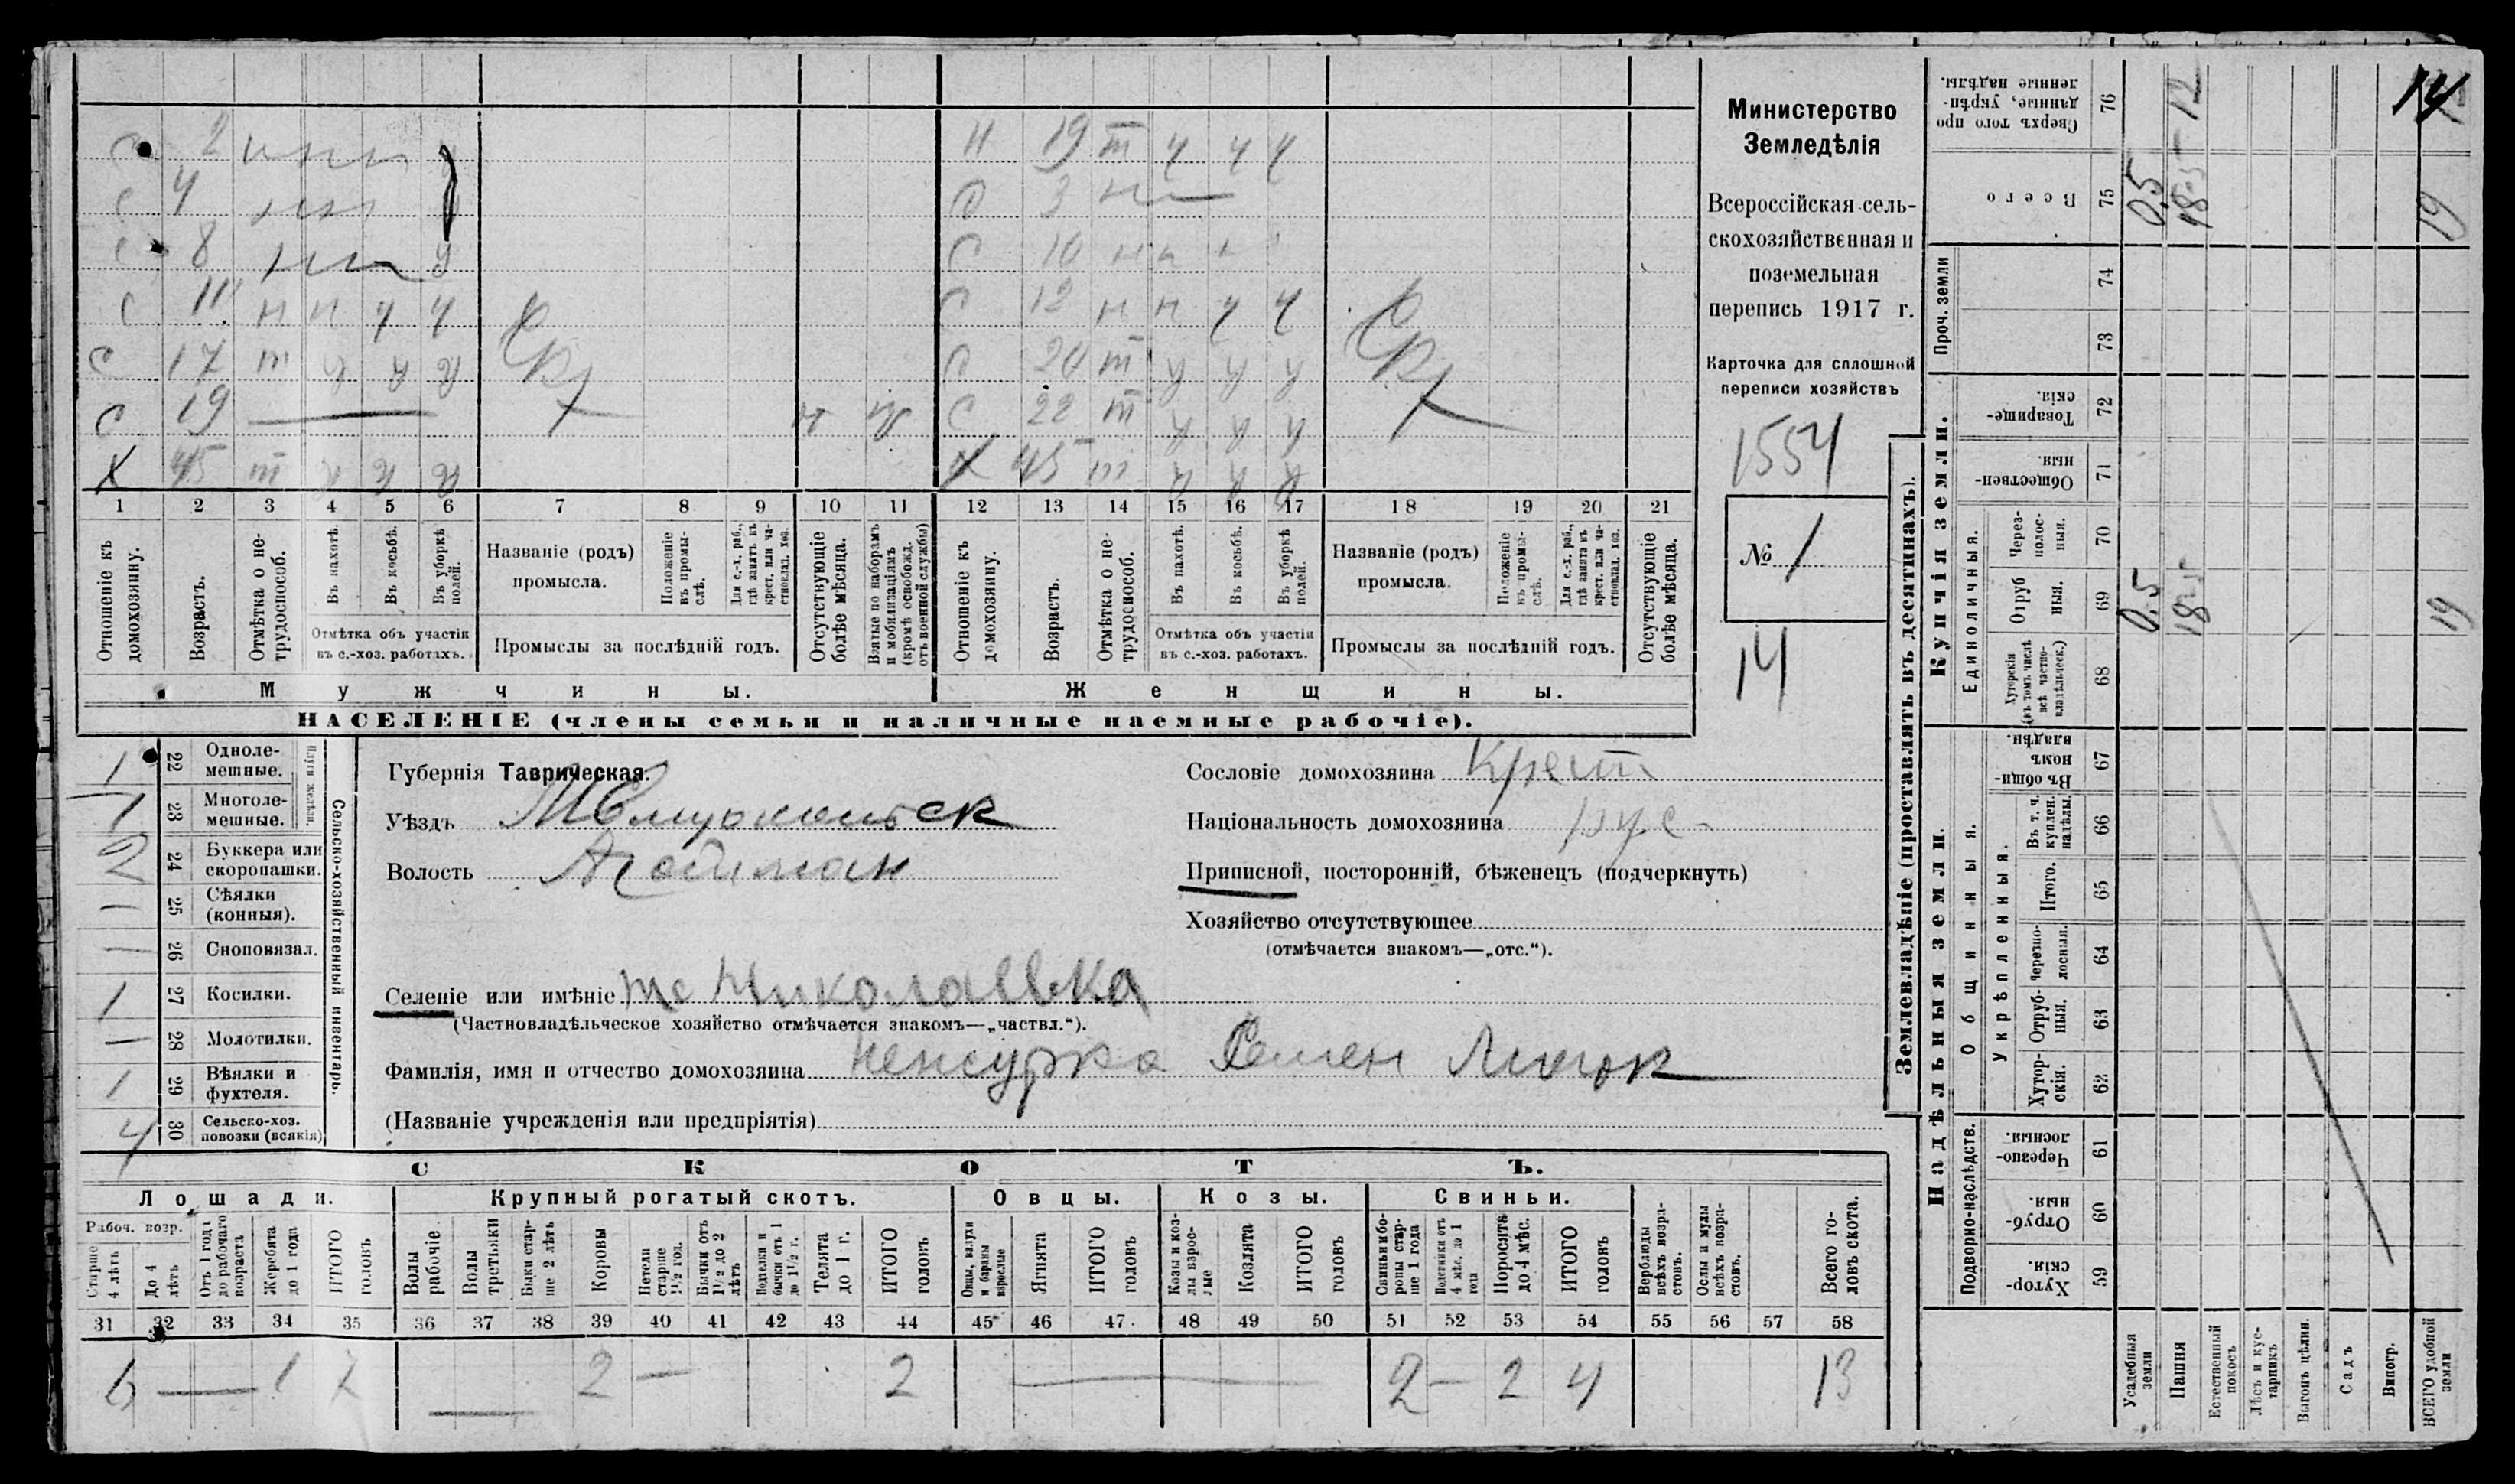 Министерство
Земледѣлія
Всероссійская сель-
скохозяйственная и
поземельная
перепись 1917 г.
Карточка для сплошной
переписи хозяйствъ
1554
№ 1
14
2
4
8 у
11 н н ч ч
с 17 т
с 19
Х 45 т
Н 19 т ч ч ч
3
10
12 н н ч ч
20 т
22 т
Х 45 т
1 2 3 4 5 6 7 8 9 10 11 12 13 14 15 16 17 18 19 20 21
Отношеніе къ домохозяину.
Возрастъ.
Отмѣтка о не-трудоспособ.
Въ пахотѣ.
Въ косьбѣ.
Въ уборкѣ полей.
Отмѣтка объ участіи
въ с.-хоз. работахъ.
Названіе (родъ)
промысла.
Положеніе въ промы-слѣ.
Для с.-х. раб., гдѣ занятъ въ крест. или ча-стновлад. хоз.
Промыслы за послѣдній годъ.
Отсутствующіе болѣе мѣсяца.
Взятые по наборамъ и мобилизаціямъ (кромѣ освобожд. отъ военной службы)
Отношеніе къ домохозяину.
Возрастъ.
Отмѣтка о не-трудоспособ.
Въ пахотѣ.
Въ косьбѣ.
Въ уборкѣ полей.
Отмѣтка объ участіи
въ с.-хоз. работахъ.
Названіе (родъ)
промысла.
Положеніе въ промы-слѣ.
Для с.-х. раб., гдѣ занята въ крест. или ча-стновлад. хоз.
Промыслы за послѣдній годъ.
Отсутствующіе болѣе мѣсяца.
Мужчины.
Женщины.
НАСЕЛЕНІЕ (члены семьи и наличные наемные рабочіе).
Сельско-хозяйственный инвентарь.
Плуги желѣзн.
1 22 Одноле-мешные.
1 23 Многоле-мешные.
2 24 Буккера или скоропашки.
— 25 Сѣялки (конныя).
— 26 Сноповязал.
1 27 Косилки.
— 28 Молотилки.
1 29 Вѣялки и фухтеля.
4 30 Сельско-хоз. повозки (всякія)
Губернія Таврическая.
Уѣздъ
Волость Агайман
Селеніе или имѣніе Николаевка
(Частновладѣльческое хозяйство отмѣчается знакомъ—„частвл.“).
Фамилія, имя и отчество домохозяина Семен
(Названіе учрежденія или предпріятія)
Сословіе домохозяина Крест
Національность домохозяина рус
Приписной, посторонній, бѣженецъ (подчеркнуть)
Хозяйство отсутствующее
(отмѣчается знакомъ—„отс.“).
СКОТЪ.
Лошади. Крупный рогатый скотъ. Овцы. Козы. Свиньи.
Рабоч. возр.
Старше 4 лѣтъ
До 4 лѣтъ
Отъ 1 года до рабочаго возраста
Жеребята до 1 года
ИТОГО головъ
Волы рабочіе
Волы третьяки
Быки стар-ше 2 лѣтъ
Коровы
Нетели старше 1½ год.
Бычки отъ 1½ до 2 лѣтъ
Подтелки и бычки отъ 1 до 1½ г.
Телята до 1 г.
ИТОГО головъ
Овцы, валухи и бараны взрослые
Ягнята
ИТОГО головъ
Козы и коз-лы взрос-лые
Козлята
ИТОГО головъ
Свиньи и бо-ровы стар-ше 1 года
Подсвинки отъ 4 мѣс. до 1 года
Поросята до 4 мѣс.
ИТОГО головъ
Верблюды всѣхъ возра-стовъ.
Ослы и мулы всѣхъ возра-стовъ.
Всего го-ловъ скота.
31 32 33 34 35 36 37 38 39 40 41 42 43 44 45 46 47 48 49 50 51 52 53 54 55 56 57 58
6 — 1 7 — 2 — 2 — 2 — 2 4 13
Землевладѣніе (проставлять въ десятинахъ).
Купчія земли.
Надѣльныя земли.
Сверхъ того про-данные, укрѣп-ленные надѣлы. 76
Всего 75
Проч. земли
74
73
Товарище-скія. 72
Обществен-ныя. 71
Единоличныя.
Через-полос-ныя. 70
Отруб ныя. 69
Хуторскія (въ томъ числѣ всѣ частно-владѣльческ.) 68
Общинныя.
Въ общи-номъ владѣн. 67
Укрѣпленныя.
Въ т. ч. куплен. надѣлы. 66
Итого. 65
Черезпо-лосныя. 64
Отруб-ныя. 63
Хутор-скія. 62
Подворно-наслѣдств.
Черезпо-лосныя. 61
Отруб-ныя. 60
Хутор-скія. 59
Усадебныя земли
Пашня
Естественный покосъ
Лѣсъ и кус-тарникъ
Выгонъ цѣлин.
Садъ
Виногр.
ВСЕГО удобной земли
12
14
0.5 18.5 19
0.5 18.5 19